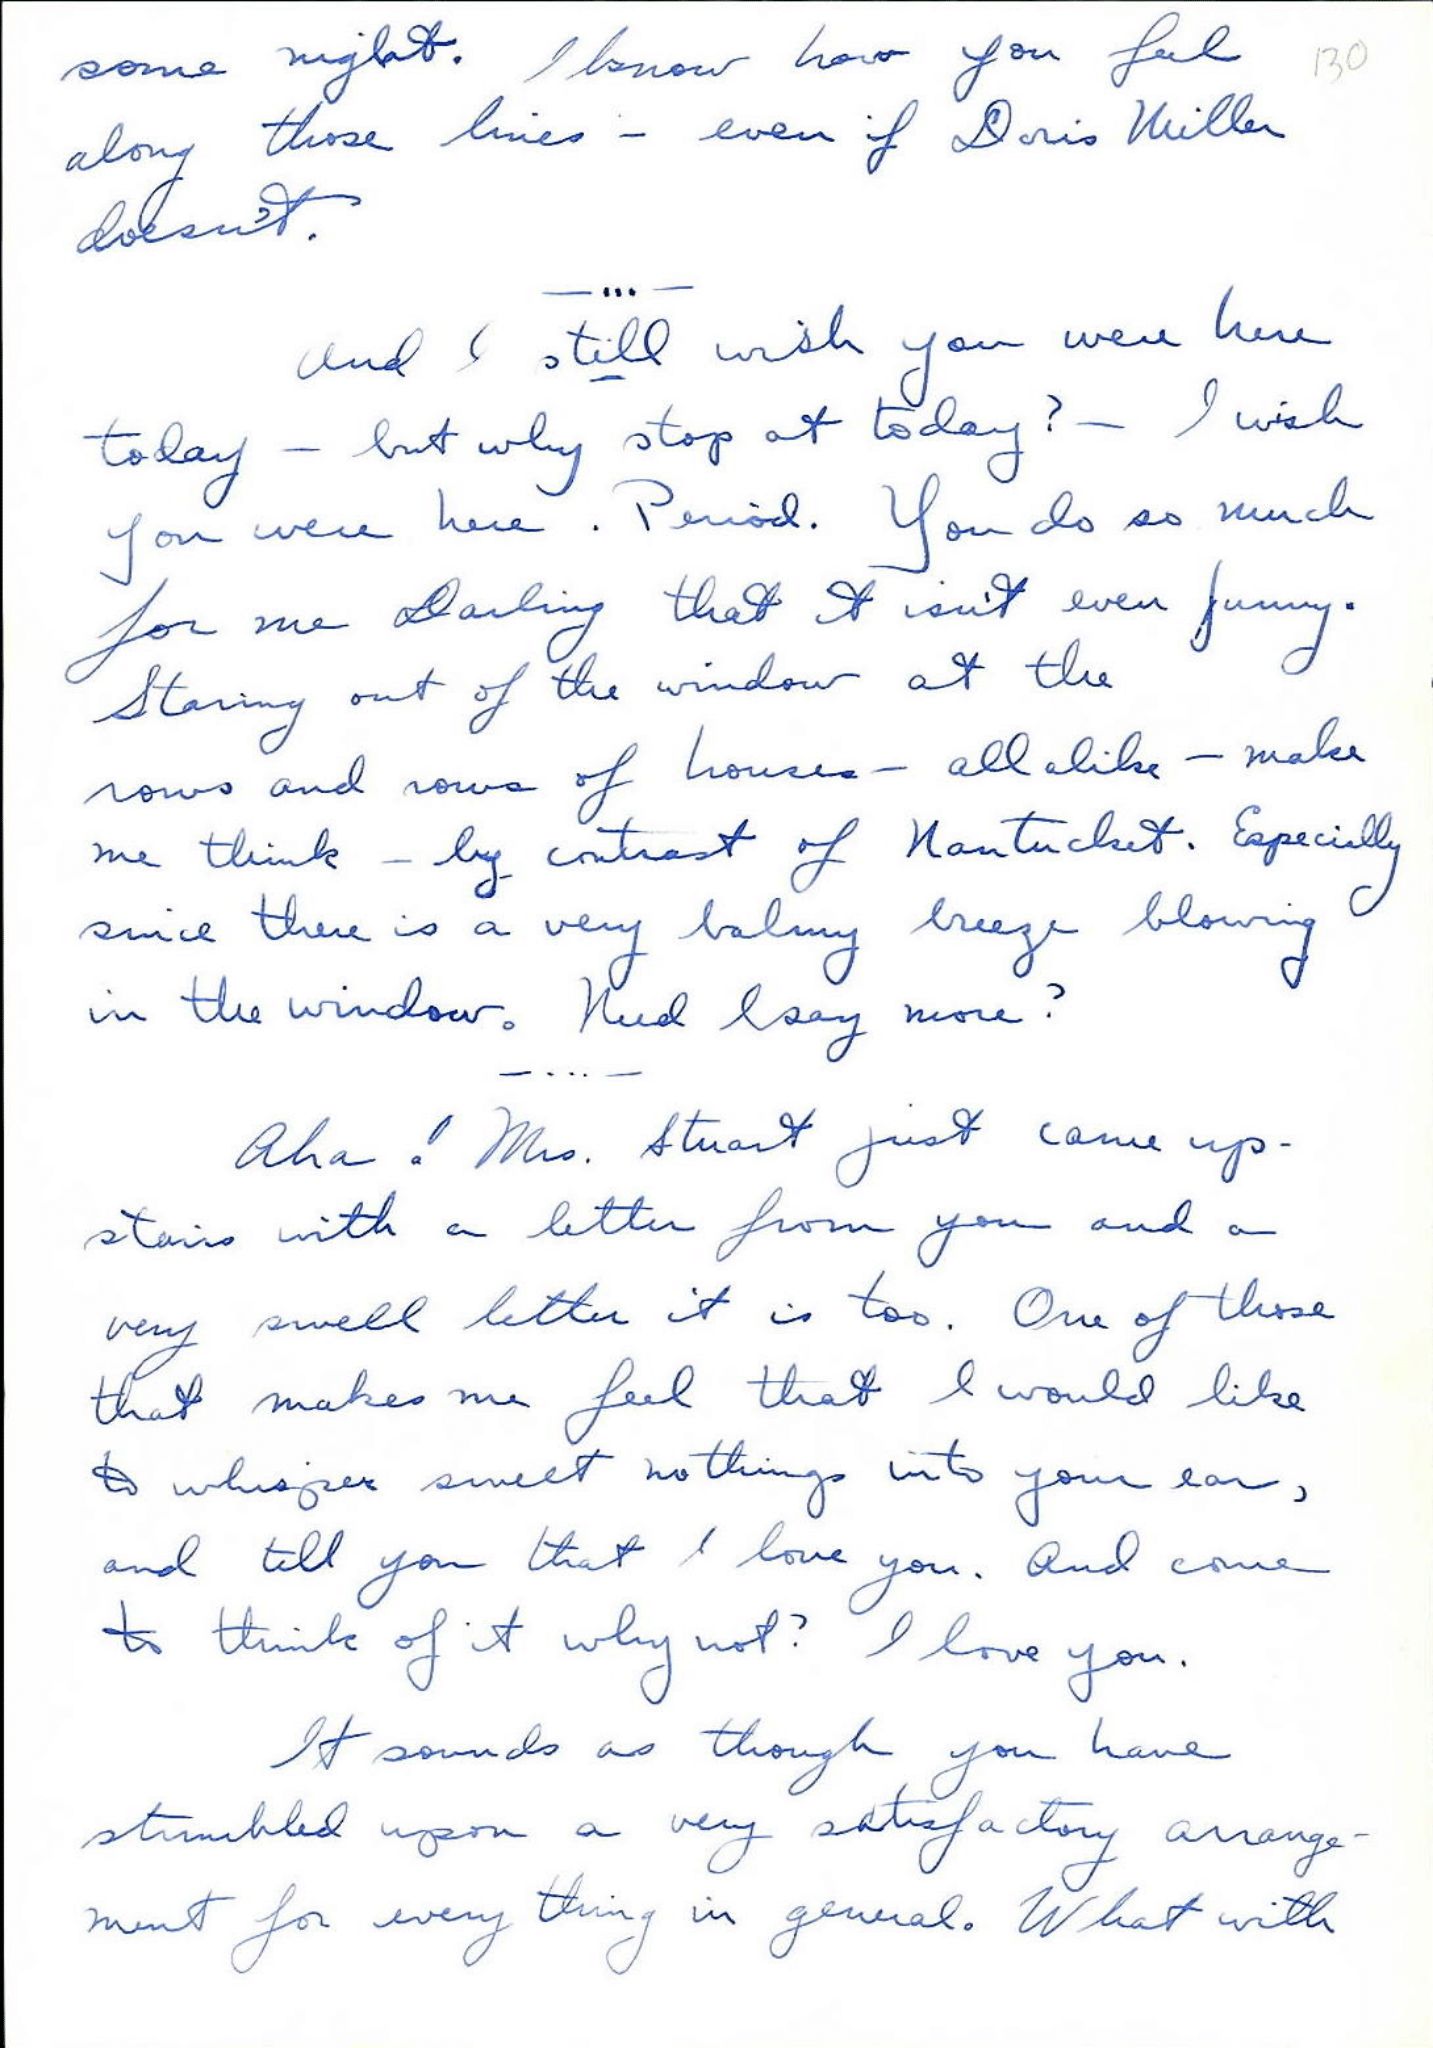 130
some night. I know how you feel
along those lines - even if Doris Miller
doesn't.
— ... —
And I still wish you were here
today — but why stop at today? — I wish
you were here. Period. You do so much
for me Darling that it isn't even funny.
Staring out of the window at the
rows and rows of houses — all alike — make
me think — by contrast of Nantucket. Especially
since there is a very balmy breeze blowing
in the window. Need I say more?
— ... —
Aha! Mrs. Stuart just came up-
stairs with a letter from you and a
very swell letter it is too. One of those
that makes me feel that I would like
to whisper sweet nothings into your ear,
and tell you that I love you. And come
to think of it why not? I love you.
It sounds as though you have
stumbled upon a very satisfactory arrange-
ment for every thing in general. What with